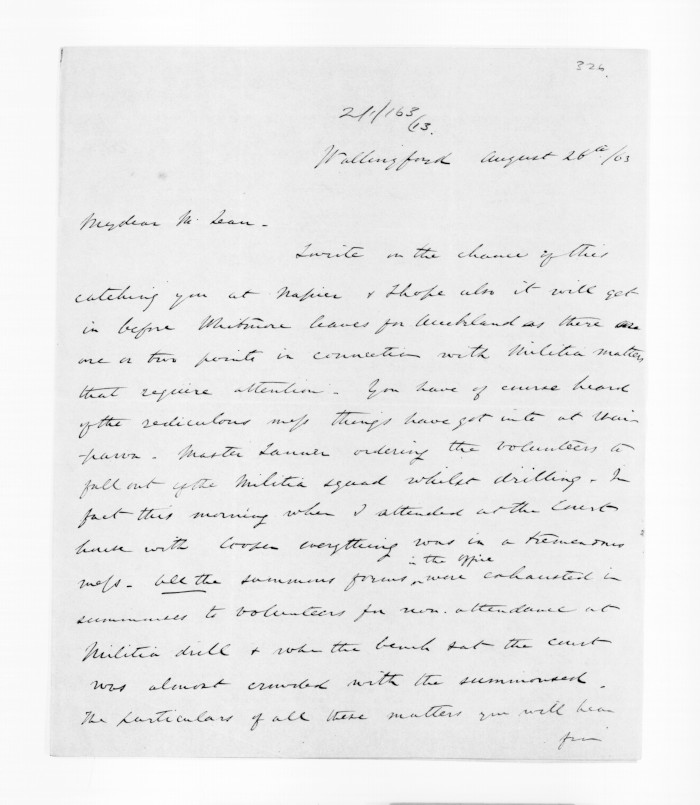 326.
2/1/163
/13.
Wallingford August 26th /63
My dear McLean -
I write on the chance of this
catching you at Napier & I hope also it will get
in before Whitmore leaves for Auckland as there are
one or two points in connection with Militia matters
that require attention - You have of course heard
of the rediculous mess things have got into at Wai-
-pawa - Master Tanner ordering the volunteers to
fall out of the Militia squad whilst drilling - In
fact this morning when I attended at the Court
house with Cooper everything was in a tremendous
mess - all the summons forms in the office were exhausted in
summonses to volunteers for non-attendance at
Militia drill & when the bench sat the court
was almost crowded with the summonsed.
The particulars of all these matters you will hear